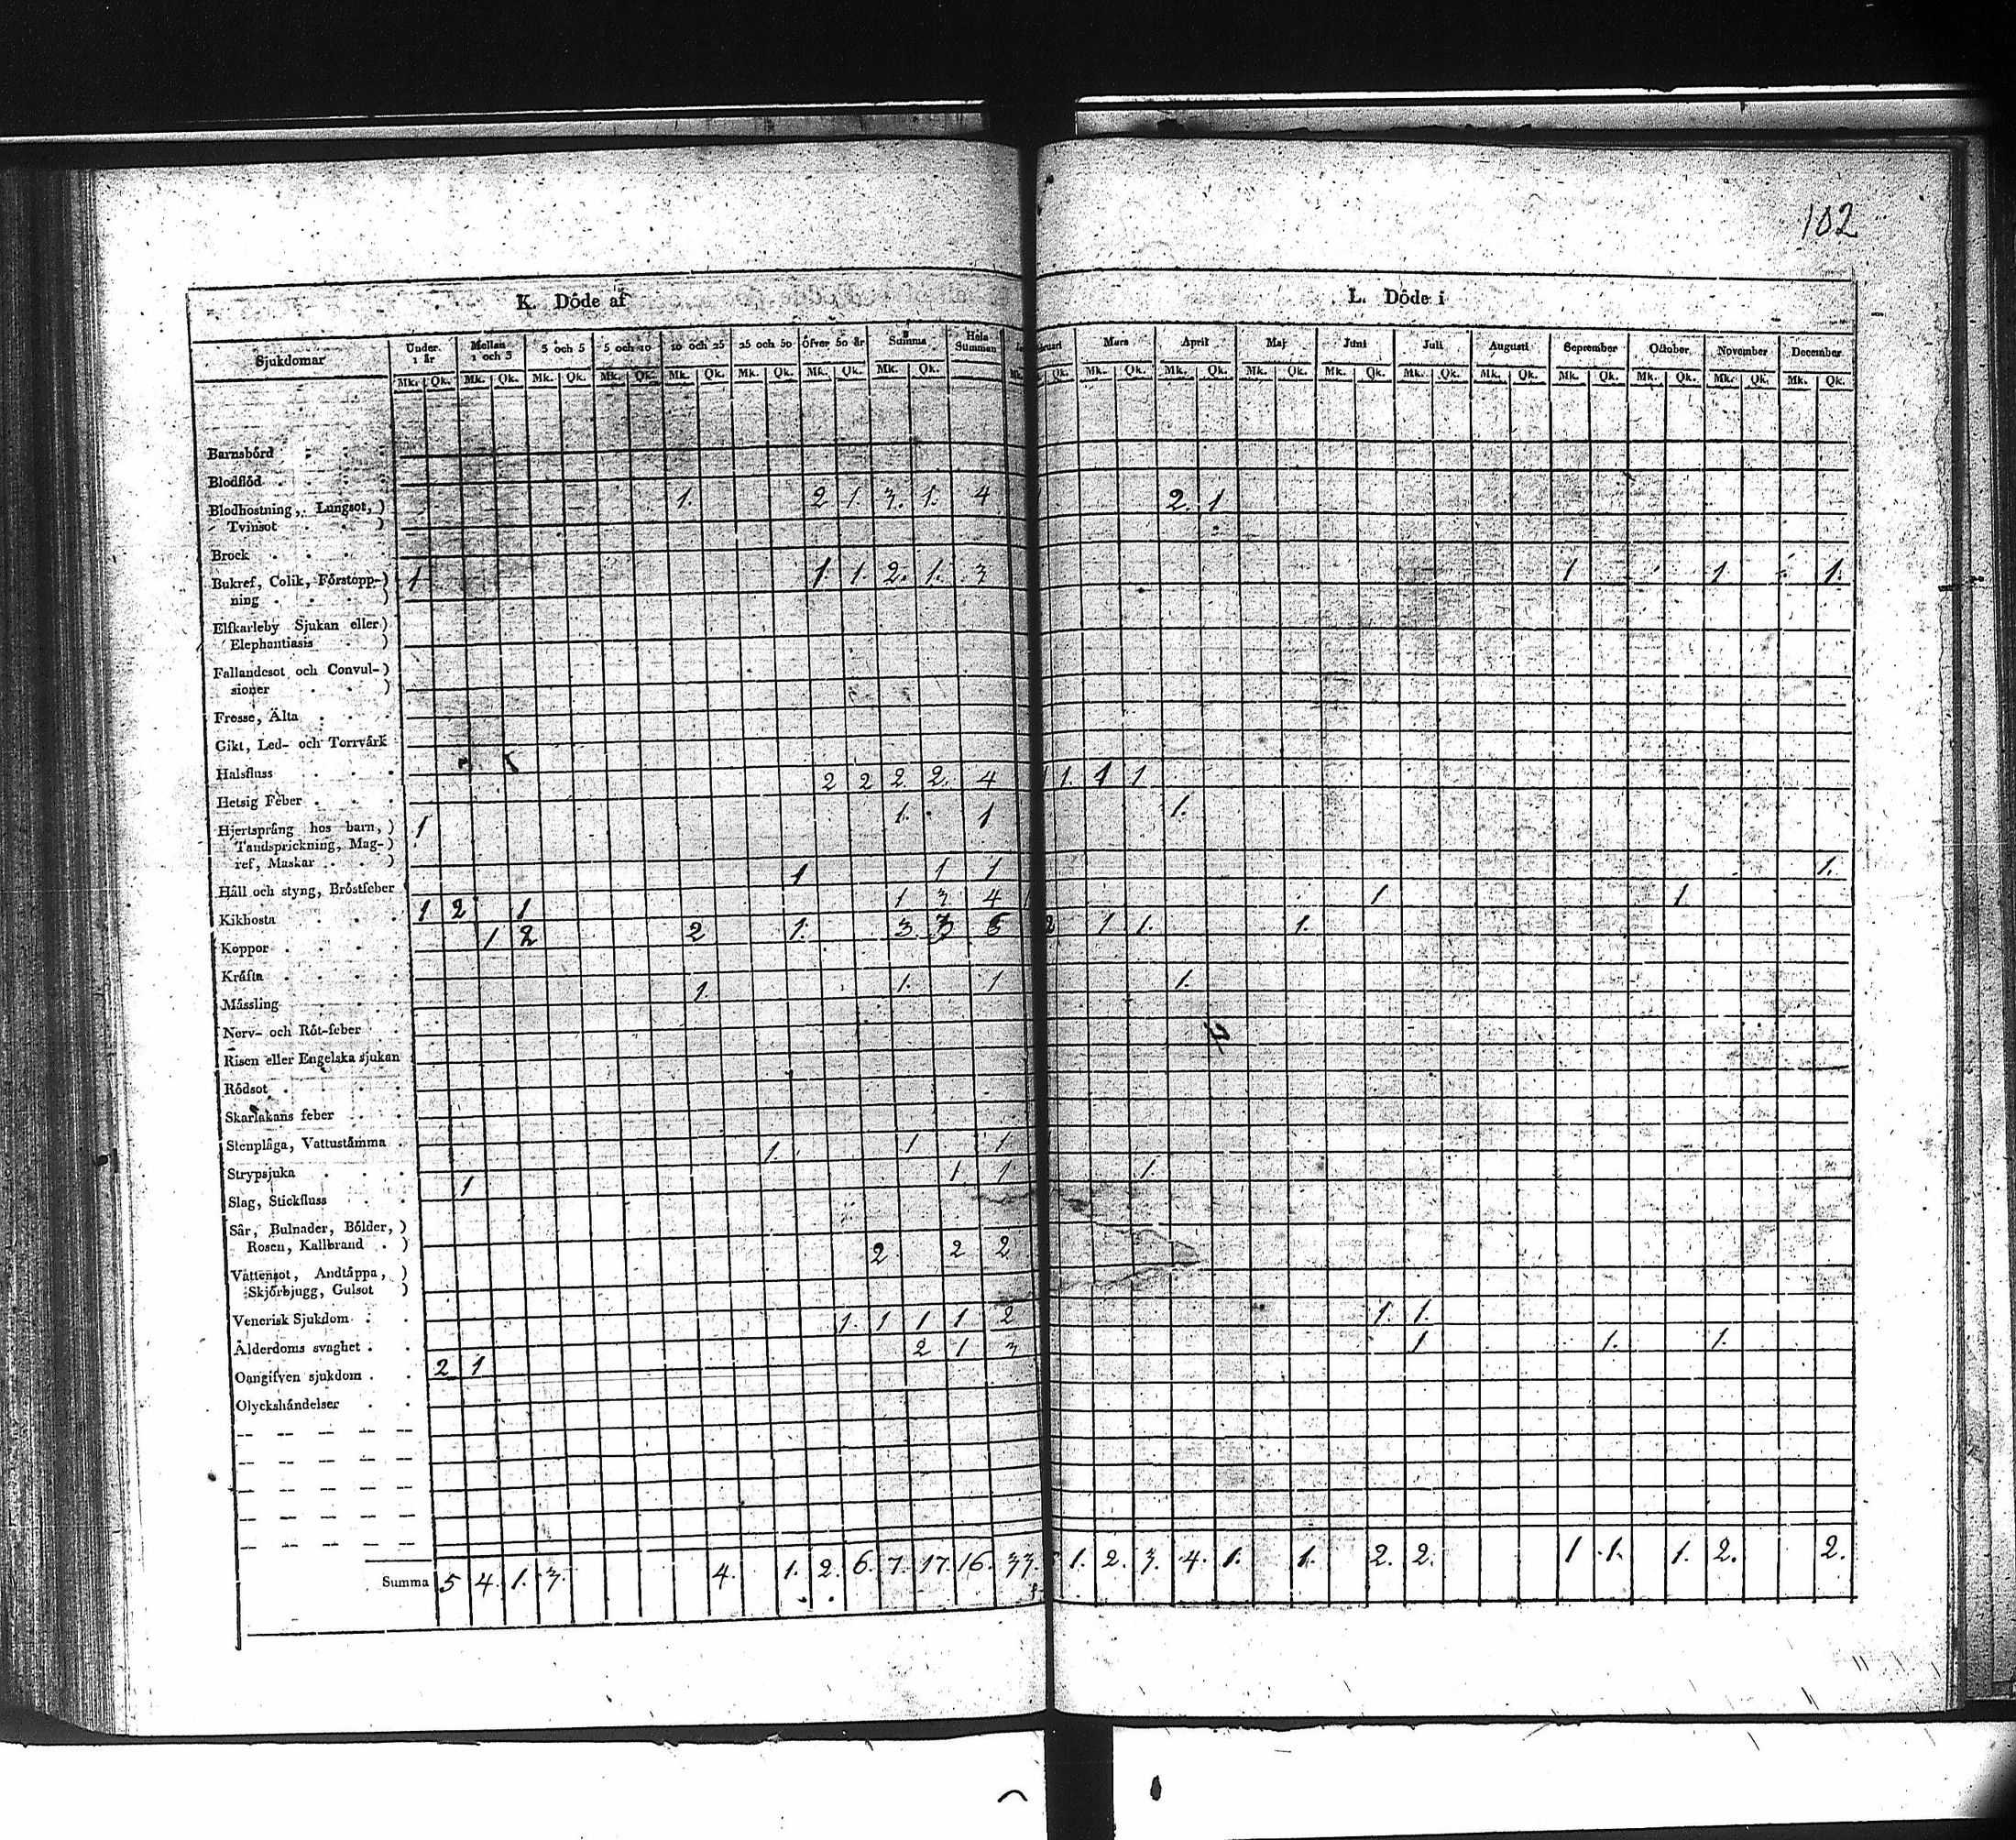 102
K. Döde af
L. Döde i
Sjukdomar Under 1 år Mellan 1 och 3 3 och 5 5 och 10 10 och 25 25 och 50 Öfver 50 år Summa Hela Summan Mars April Maj Juni Juli Augusti September October November December
Mk. Qk. Mk. Qk. Mk. Qk. Mk. Qk. Mk. Qk. Mk. Qk. Mk. Qk. Mk. Qk. Mk. Qk. Mk. Qk. Mk. Qk. Mk. Qk. Mk. Qk. Mk. Qk. Mk. Qk. Mk. Qk. Mk. Qk. Mk. Qk. Mk. Qk.
Barnsbörd
Blodflöd
Blodhostning, Lungsot,) 1. 2 1. 3. 1. 4 2. 1
Tvinsot )
Brock
Bukref, Colik, Förstopp-) 1 1. 1. 2. 1. 3 1 1 1.
ning )
Elfkarleby Sjukan eller)
Elephantiasis )
Fallandesot och Convul-)
sioner )
Frosse, Älta
Gikt, Led- och Torrvärk
Halsfluss
Hetsig Feber 2 2 2 2. 4 1. 1 1
Hjertsprång hos barn,) 1 1. 1 1.
Tandsprickning, Mag-)
ref, Maskar )
Håll och styng, Bröstfeber 1 1 1 1.
Kikhosta 1 2 1 1 3 4 1 1
Koppor 1 2 2 1. 3 3 6 2 1 1. 1.
Kräfta
Mässling 1. 1. 1 1.
Nerv- och Röt-feber
Risen eller Engelska sjukan
Rödsot
Skarlakans feber
Stenplåga, Vattustämma
Strypsjuka 1. 1 1
Slag, Stickfluss 1 1 1 1.
Sår, Bulnader, Bölder,)
Rosen, Kallbrand )
Vattensot, Andtäppa,) 2 2 2
Skjörbjugg, Gulsot )
Venerisk Sjukdom
Ålderdoms svaghet 1. 1 1 1 2 1. 1.
Oangifven sjukdom 2 1 2 1 3 1 1. 1.
Olyckshändelser
Summa 5 4. 1. 3. 4. 1. 2. 6. 7. 17. 16. 33. 1. 2. 3. 4. 1. 1. 2. 2. 1 1. 1. 2. 2.